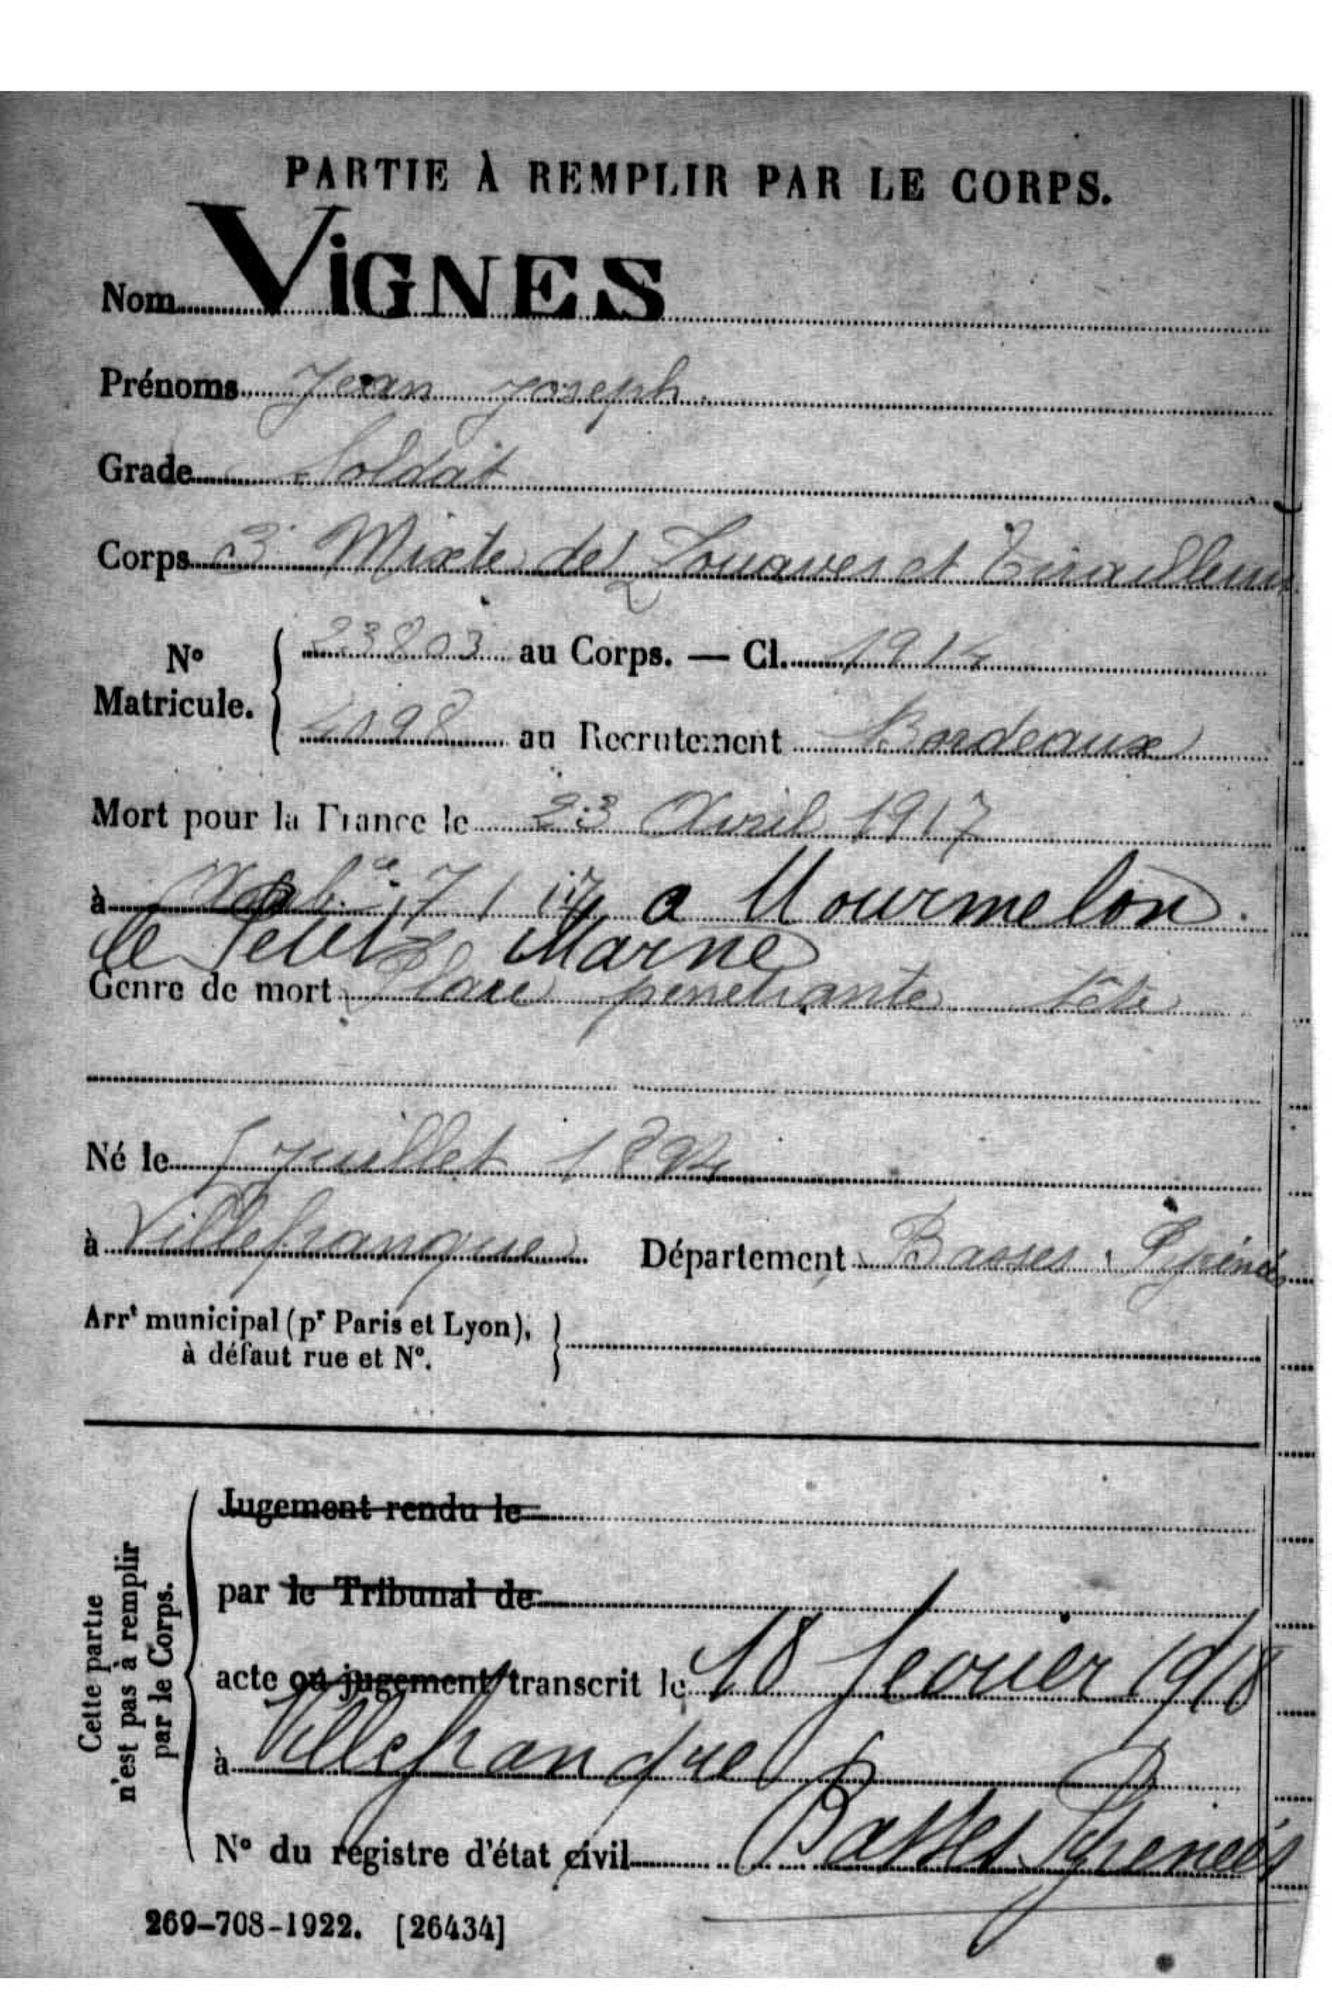 PARTIE À REMPLIR PAR LE CORPS.
Nom VIGNES
Prénoms Jean Joseph.
Grade Soldat
Corps 3e Mixte de Zouaves et Tirailleurs
No Matricule. 23803 au Corps. — Cl. 1914
4198 au Recrutement Bordeaux
Mort pour la France le 23 Avril 1917
à Ambce 7/17 a Mourmelon
le Petit Marne
Genre de mort Plaie pénétrante tête
Né le 5 Juillet 1894
à Villefranque Département Basses Pyrénées
Arrt municipal (pr Paris et Lyon),
à défaut rue et No.
Cette partie
n'est pas à remplir
par le Corps.
Jugement rendu le
par le Tribunal de
acte ou jugement transcrit le 18 fevrier 1918
à Villefranque
No du registre d'état civil (Basses Pyrenées
269-708-1922. [26434]